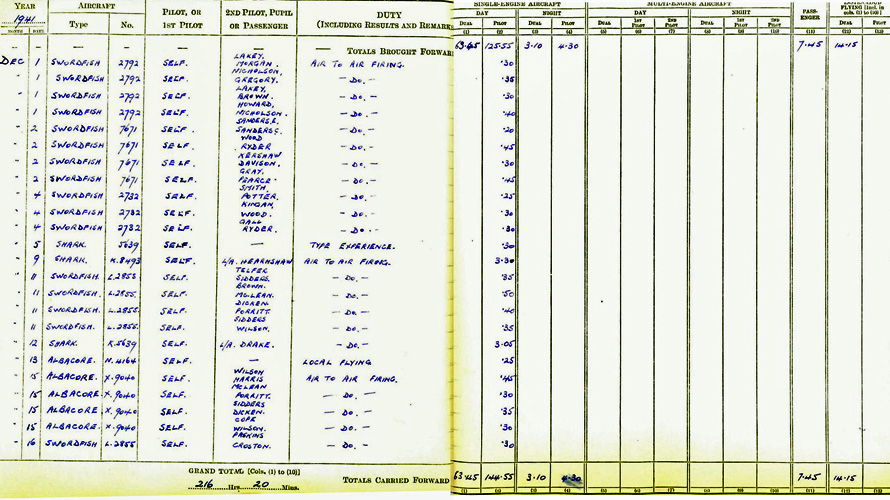 YEAR AIRCRAFT PILOT, OR 2ND PILOT, PUPIL DUTY SINGLE-ENGINE AIRCRAFT MULTI-ENGINE AIRCRAFT PASS-
1941 Type No. 1ST PILOT OR PASSENGER (INCLUDING RESULTS AND REMARKS DAY NIGHT DAY NIGHT ENGER FLYING [Incl. in cols. (1) to (10)]
MONTH DATE DUAL PILOT DUAL PILOT DUAL 1ST PILOT 2ND PILOT DUAL 1ST PILOT 2ND PILOT DUAL PILOT
(1) (2) (3) (4) (5) (6) (7) (8) (9) (10) (11) (12) (13)
— — — — — TOTALS BROUGHT FORWARD 63.45 125.55 3.10 4.30 7.45 14.15
DEC 1 SWORDFISH 2792 SELF. LAKEY, MORGAN. AIR TO AIR FIRING. .30
" 1 SWORDFISH 2792 SELF. NICHOLSON, GREGORY. — DO. — .35
" 1 SWORDFISH 2792 SELF. LAKEY, BROWN. — DO. — .30
" 1 SWORDFISH 2792 SELF. HOWARD, NICHOLSON. — DO. — .40
" 2 SWORDFISH 7671 SELF. SANDERS.E. SANDERS.C. — DO. — .20
" 2 SWORDFISH 7671 SELF. WOOD RYDER — DO. — .45
" 2 SWORDFISH 7671 SELF. KERSHAW DAVISON. — DO. — .30
" 2 SWORDFISH 7671 SELF. GRAY. PEARCE. — DO. — .45
" 4 SWORDFISH 2732 SELF. SMITH. POTTER. — DO. — .25
" 4 SWORDFISH 2732 SELF. KINGAN. WOOD. — DO. — .30
" 4 SWORDFISH 2732 SELF. GALL RYDER. — DO. — .30
" 5 SHARK. 5639 SELF. — TYPE EXPERIENCE. .30
" 9 SHARK. K.8493 SELF. L/A. HEARNSHAW AIR TO AIR FIRING. 3.30
" 11 SWORDFISH. L.2855 SELF. TELFER SIDDERS. — DO. — .35
" 11 SWORDFISH. L.2855. SELF. BROWN. McLEAN. — DO. — .50
" 11 SWORDFISH. L.2855 SELF. DICKEN. PORRITT. — DO. — .40
" 11 SWORDFISH. L.2855. SELF. SIDDERS WILSON. — DO. — .35
" 12 SHARK. K.5639 SELF. L/A. DRAKE. — DO. — 3.05
" 13 ALBACORE. N.4164 SELF. — LOCAL FLYING .25
" 15 ALBACORE. X.9040 SELF. WILSON HARRIS AIR TO AIR FIRING. .45
" 15 ALBACORE. X.9040 SELF. McLEAN PORRITT. — DO. — .30
" 15 ALBACORE. X.9040 SELF. SIDDERS DICKEN. — DO. — .35
" 15 ALBACORE. X.9040 SELF. COPE WILSON. — DO. — .30
" 16 SWORDFISH L.2855 SELF. PASKINS CROSTON. — DO. — .30
GRAND TOTAL [Cols. (1) to (10)]
216 Hrs. 20 Mins. TOTALS CARRIED FORWARD 63.45 144.55 3.10 4.30 7.45 14.15
(1) (2) (3) (4) (5) (6) (7) (8) (9) (10) (11) (12) (13)